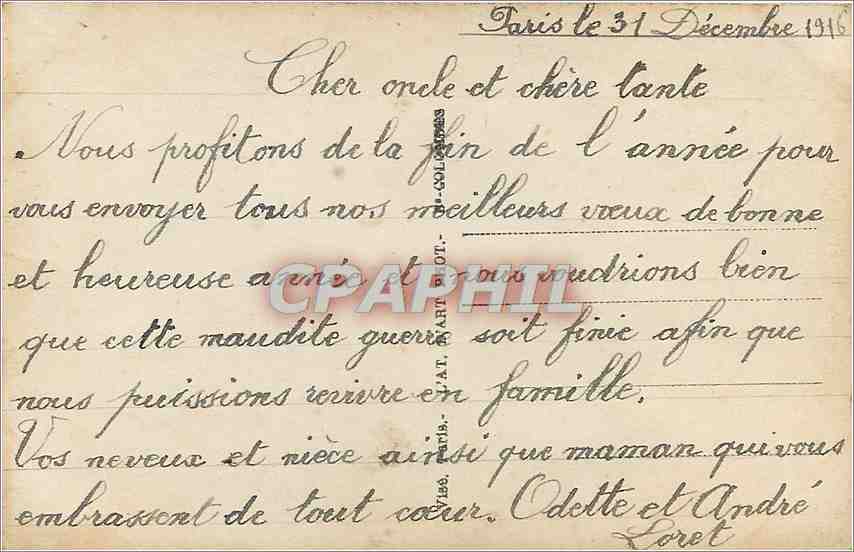 Paris le 31 Décembre 1916
Cher oncle et chère tante
Nous profitons de la fin de l'année pour
vous envoyer tous nos meilleurs vœux de bonne
et heureuse année et nous voudrions bien
que cette maudite guerre soit finie afin que
nous puissions revivre en famille.
Vos neveux et nièce ainsi que maman qui vous
embrassent de tout cœur. Odette et André
Loret
CPAPHIL
Visé, Paris.- AT. D'ART PHOT.- COLOMBES